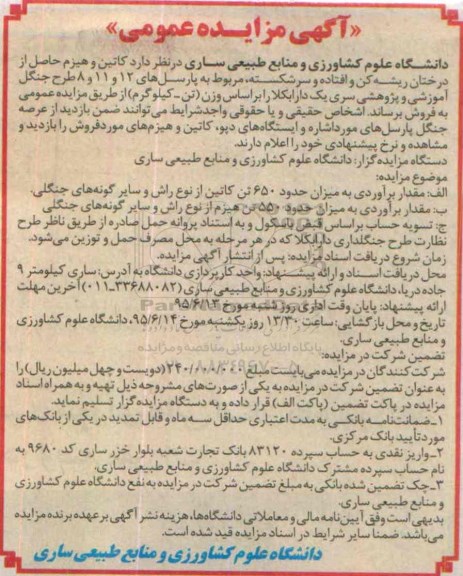 «آگهی مزایده عمومی»
دانشگاه علوم کشاورزی و منابع طبیعی ساری درنظر دارد کاتین و هیزم حاصل از
درختان ریشه‌کن و افتاده و سرشکسته، مربوط به پارسل‌های ۱۲ و ۱۱ و ۸ طرح جنگل
آموزشی و پژوهشی سری یک دارابکلا را براساس وزن (تن-کیلوگرم) از طریق مزایده عمومی
به فروش برساند. اشخاص حقیقی و یا حقوقی واجدشرایط می‌توانند ضمن بازدید از عرصه
جنگل پارسل‌های مورداشاره و ایستگاه‌های دپو، کاتین و هیزم‌های موردفروش را بازدید و
مشاهده و نرخ پیشنهادی خود را اعلام دارند.
دستگاه مزایده‌گزار: دانشگاه علوم کشاورزی و منابع طبیعی ساری
موضوع مزایده:
الف: مقدار برآوردی به میزان حدود ۶۵۰ تن کاتین از نوع راش و سایر گونه‌های جنگلی.
ب: مقدار برآوردی به میزان حدود ۵۵۰ تن هیزم از نوع راش و سایر گونه‌های جنگلی
ج: تسویه حساب براساس قبض باسکول و به استناد پروانه حمل صادره از طریق ناظر طرح
نظارت طرح جنگلداری دارابکلا که در هر مرحله به محل مصرف حمل و توزین می‌شود.
زمان شروع دریافت اسناد مزایده: پس از انتشار آگهی مزایده.
محل دریافت اسناد و ارائه پیشنهاد: واحد کارپردازی دانشگاه به آدرس: ساری کیلومتر ۹
جاده دریا، دانشگاه علوم کشاورزی و منابع طبیعی ساری (۳۳۶۸۸۰۸۲-۰۱۱) آخرین مهلت
ارائه پیشنهاد: پایان وقت اداری روز شنبه مورخ ۹۵/۶/۱۳
تاریخ و محل بازگشایی: ساعت ۱۳/۳۰ روز یکشنبه مورخ ۹۵/۶/۱۴، دانشگاه علوم کشاورزی
و منابع طبیعی ساری.
پایگاه اطلاع رسانی مناقصه و مزایده
تضمین شرکت در مزایده:
شرکت کنندگان در مزایده می‌بایست مبلغ ۲۴۰/۰۰۰/۰۰۰ (دویست و چهل میلیون ریال) را
به عنوان تضمین شرکت در مزایده به یکی از صورت‌های مشروحه ذیل تهیه و به همراه اسناد
مزایده در پاکت تضمین (پاکت الف) قرار داده و به دستگاه مزایده‌گزار تسلیم نماید.
۱-ضمانت‌نامه بانکی به مدت اعتباری حداقل سه ماه و قابل تمدید در یکی از بانک‌های
مورد تأیید بانک مرکزی.
۲-واریز نقدی به حساب سپرده ۸۳۱۲۰ بانک تجارت شعبه بلوار خزر ساری کد ۹۶۸۰ به
نام حساب سپرده مشترک دانشگاه علوم کشاورزی و منابع طبیعی ساری.
۳-چک تضمین شده بانکی به مبلغ تضمین شرکت در مزایده به نفع دانشگاه علوم کشاورزی
و منابع طبیعی ساری.
بدیهی است وفق آیین‌نامه مالی و معاملاتی دانشگاه‌ها، هزینه نشر آگهی بر عهده برنده مزایده
می‌باشد. ضمناً سایر شرایط در اسناد مزایده قید شده است.
دانشگاه علوم کشاورزی و منابع طبیعی ساری